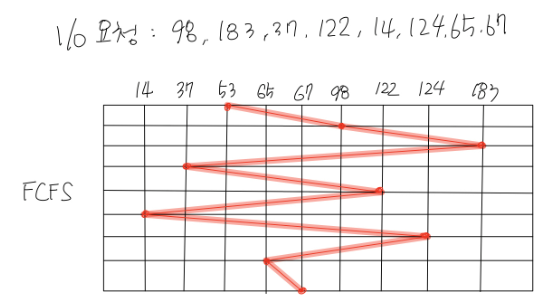 I/O 요청 : 98, 183, 37, 122, 14, 124, 65, 67
14 37 53 65 67 98 122 124 183
FCFS